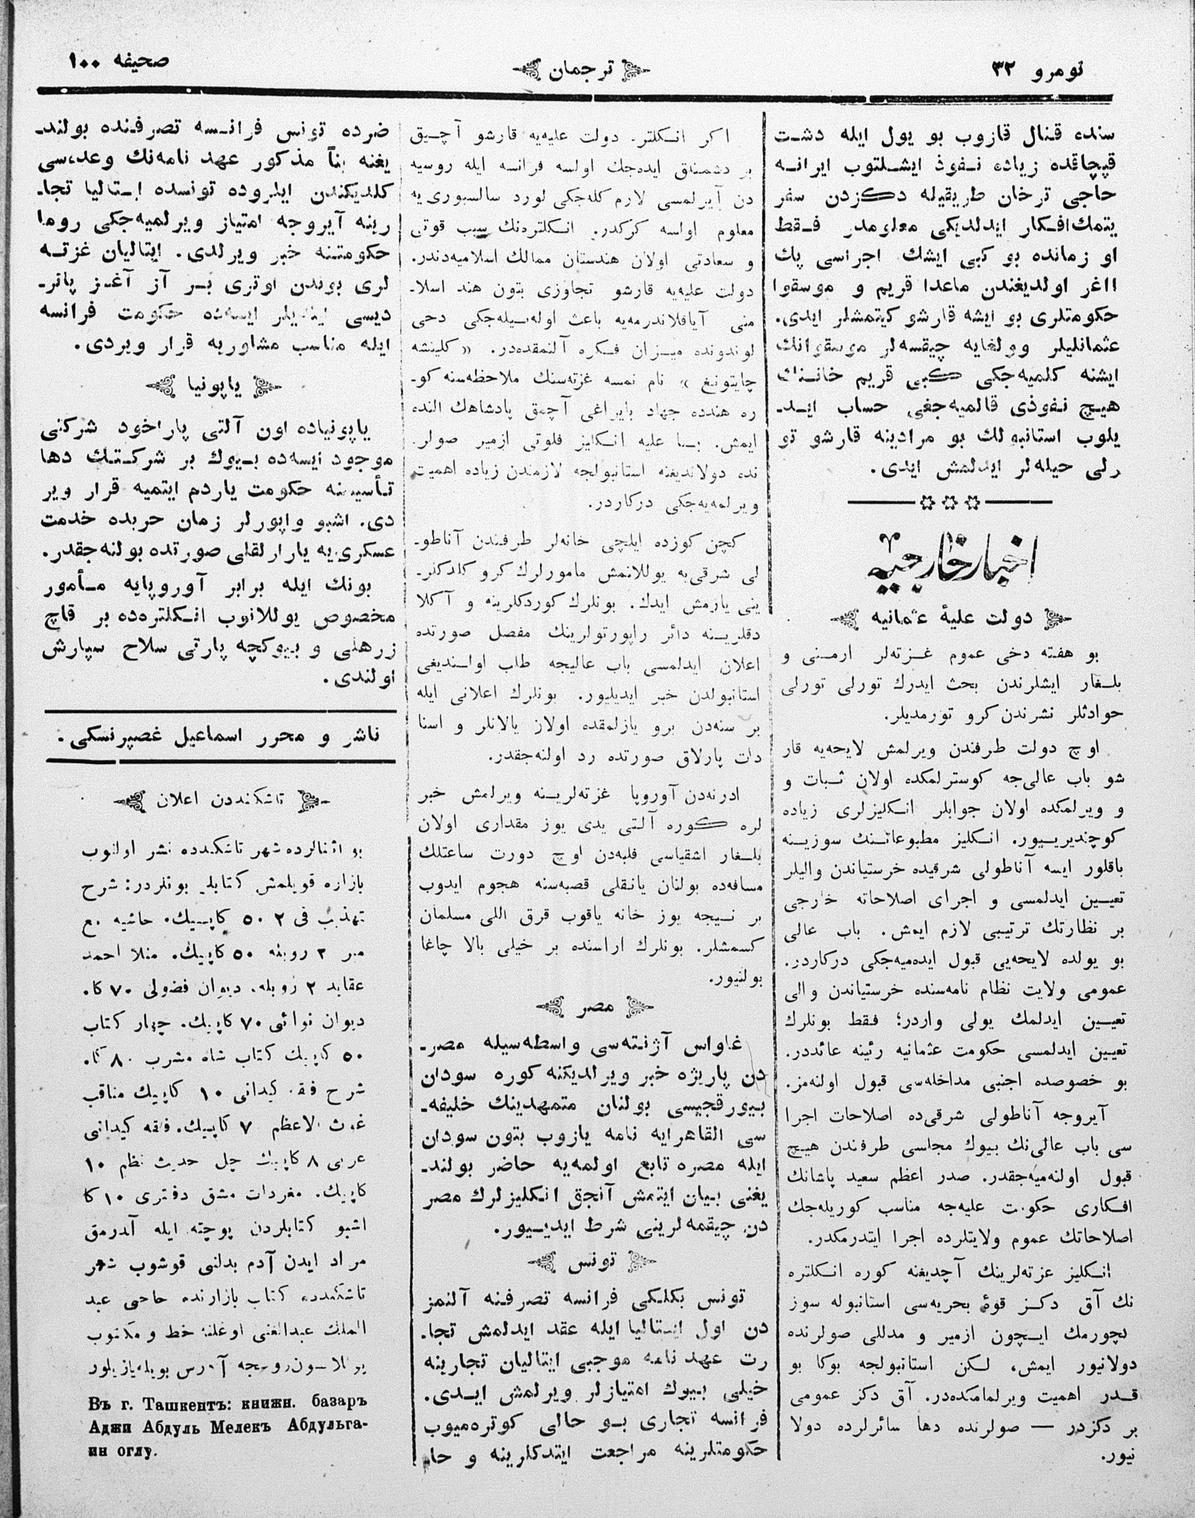 نومرو ۳۲
ترجمان
صحیفه ۱۰۰
سنده قنال قازوب بو یول ایله دشت
قپچاقده زیاده نفوذ ایشلتوب ایرانه
حاجی ترخان طریقیله دکزدن سفر
یتمك افکار ایدلدیکی معلومدر فقط
او زمانده بو کبی ایشك اجراسی پك
آغر اولدیغندن ماعدا قریم و موسقوا
حکومتلری بو ایشه قارشو کیتمشلر ایدی.
عثمانلیلر وولغایه چیقسه‌لر موسقوانك
ایشنه کلمیه‌جکی کبی قریم خاننك
هیچ نفوذی قالمیه‌جغی حساب اید-
یلوب استانبولك بو مرادینه قارشو تو
رلی حیله‌لر ایدلمش ایدی.
اخبار خارجیه
دولت علیهٔ عثمانیه
بو هفته دخی عموم غزته‌لر ارمنی و
بلغار ایشلرندن بحث ایدرك تورلی تورلی
حوادثلر نشرندن کرو تورمدیلر.
اوچ دولت طرفندن ویرلمش لایحه‌یه قار
شو باب عالی‌جه کوسترلمکده اولان ثبات و
و ویرلمکده اولان جوابلر انکلیزلری زیاده
کوچندیرییور. انکلیز مطبوعاتنك سوزینه
باقلور ایسه آناطولی شرقیده خرستیاندن والیلر
تعیین ایدلمسی و اجرای اصلاحاته خارجی
بر نظارتك ترتیبی لازم ایمش. باب عالی
بو یولده لایحه‌یی قبول ایده‌میه‌جکی درکاردر.
عمومی ولایت نظام نامه‌سنده خرستیاندن والی
تعیین ایدلمك یولی واردر؛ فقط بونلرك
تعیین ایدلمسی حکومت عثمانیه رئینه عائددر.
بو خصوصده اجنبی مداخله‌سی قبول اولنه‌مز.
آیروجه آناطولی شرقی‌ده اصلاحات اجرا
سی باب عالی‌نك بیوك مجلسی طرفندن هیچ
قبول اولنه‌میه‌جقدر. صدر اعظم سعید پاشانك
افکاری حکومت علیه‌جه مناسب کوریله‌جك
اصلاحاتك عموم ولایتلرده اجرا ایتدرمکدر.
انکلیز غزته‌لرینك آچدیغنه کوره انکلتره
نك آق دکز قوهٔ بحریه‌سی استانبوله سوز
کچورمك ایچون ازمیر و مدللی صولرنده
دولانیور ایمش، لکن استانبولجه بوکا بو
قدر اهمیت ویرلمامکده‌در. آق دکز عمومی
بر دکزدر — صولرنده دها سائرلرده دولا
نیور.
اکر انکلتره دولت علیه‌یه قارشو آچیق
بر دشمنلق ایده‌جك اولسه فرانسه ایله روسیه
دن آیرلمسی لازم کله‌جکی لورد سالسبوری‌یه
معلوم اولسه کرکدر. انکلتره‌نك سبب قوتی
و سعادتی اولان هندستان ممالك اسلامیه‌دندر.
دولت علیه‌یه قارشو تجاوزی بتون هند اسلا-
منی آیاقلاندرمه‌یه باعث اوله‌بیله‌جکی دخی
لوندونده میزان فکره آلنمقده‌در. «کلینشه
چایتونغ» نام نمسه غزته‌سنك ملاحظه‌سنه کو-
ره هندده جهاد بایراغی آچمق پادشاهك النده
ایمش. بناء علیه انکلیز فلوتی ازمیر صولر.
نده دولاندیغنه استانبولجه لازمندن زیاده اهمیت
ویرلمه‌یه‌جکی درکاردر.
کچن کوزده ایلچی خانه‌لر طرفندن آناطو-
لی شرقی‌یه یوللانمش مامورلرك کرو کلدکلر-
ینی یازمش ایدك. بونلرك کوردکلرینه و آکلا
دقلرینه دائر راپورتولرینك مفصل صورتده
اعلان ایدلمسی باب عالیجه طلب اولندیغی
استانبولدن خبر ایدیلیور. بونلرك اعلانی ایله
بر سنه‌دن برو یازلمقده اولان یالانلر و اسنا
دات پارلاق صورتده رد اولنه‌جقدر.
ادرنه‌دن آوروپا غزته‌لرینه ویرلمش خبر
لره کوره آلتی یدی یوز مقداری اولان
بلغار اشقیاسی فلبه‌دن اوچ دورت ساعتلك
مسافه‌ده بولنان یانقلی قصبه‌سنه هجوم ایدوب
بر نیجه یوز خانه یاقوب قرق اللی مسلمان
کسمشلر. بونلرك اراسنده بر خیلی بالا چاغا
بولنیور.
مصر
غاواس آژنته‌سی واسطه‌سیله مصر-
دن پاریژه خبر ویرلدیکنه کوره سودان
بیورقجیسی بولنان متمهدینك خلیفه-
سی القاهرایه نامه یازوب بتون سودان
ایله مصره تابع اولمه‌یه حاضر بولند-
یغنی بیان ایتمش آنجق انکلیزلرك مصر
دن چیقمه‌لرینی شرط ایدییور.
تونس
تونس بکلیکی فرانسه تصرفنه آلنمز
دن اول ایستالیا ایله عقد ایدلمش تجا-
رت عهد نامه موجبی ایتالیان تجارینه
خیلی بیوك امتیازلر ویرلمش ایدی.
فرانسه تجاری بو حالی کوتره‌میوب
حکومتلرینه مراجعت ایتدکلرینه و حا-
ضرده تونس فرانسه تصرفنده بولند-
یغنه بناً مذکور عهد نامه‌نك وعده‌سی
کلدیکندن ایلروده تونسده ایتالیا تجا-
رینه آیروجه امتیاز ویرلمیه‌جکی روما
حکومتنه خبر ویرلدی. ایتالیان غزته
لری بوندن اوتری بر آز آغز پاتر-
دیسی ایتدیلر ایسه‌ده حکومت فرانسه
ایله مناسب مشاوریه قرار ویردی.
یاپونیا
یاپونیاده اون آلتی پاراخود شرکتی
موجود ایسه‌ده بیوك بر شرکتك دها
تأسیسنه حکومت یاردم ایتمیه قرار ویر
دی. اشبو واپورلر زمان حربده خدمت
عسکری‌یه یارارلقلی صورتده بولنه‌جقدر.
بونك ایله برابر آوروپایه مأمور
مخصوص یوللانوب انکلتره‌ده بر قاچ
زرهلی و بیوکچه پارتی سلاح سپارش
اولندی.
ناشر و محرر اسماعیل غصپرنسکی.
تاشکنددن اعلان
بو اثنالرده شهر تاشکندده نشر اولنوب
بازاره قویلمش کتابلر بونلردر: شرح
تهذیب فی ۲ ۵۰ کاپیك. حاشیه مع
میر ۲ روبله ۵۰ کاپیك. منلا احمد
عقاید ۲ روبله. دیوان فضولی ۷۰ کا.
دیوان نوائی ۷۰ کاپیك. چهار کتاب
۵۰ کاپیك کتاب شاه مشرب ۸۰ کا.
شرح فقه کیدانی ۱۰ کاپیك مناقب
غوث الاعظم ۷ کاپیك. فقه کیدانی
عربی ۸ کاپیك چل حدیث نظم ۱۰
کاپیك. مفردات مشق دفتری ۱۰ کا
اشبو کتابلردن پوچته ایله آلدرمق
مراد ایدن آدم بدلنی قوشوب شهر
تاشکندده کتاب بازارنده حاجی عبد
الملك عبدالغنی اوغلنه خط و مکتوب
یوللاسون روسچه آدرس بویله یازیلور
Въ г. Ташкентъ: книжн. базаръ
Аджи Абдуль Мелекъ Абдульга-
ин оглу.